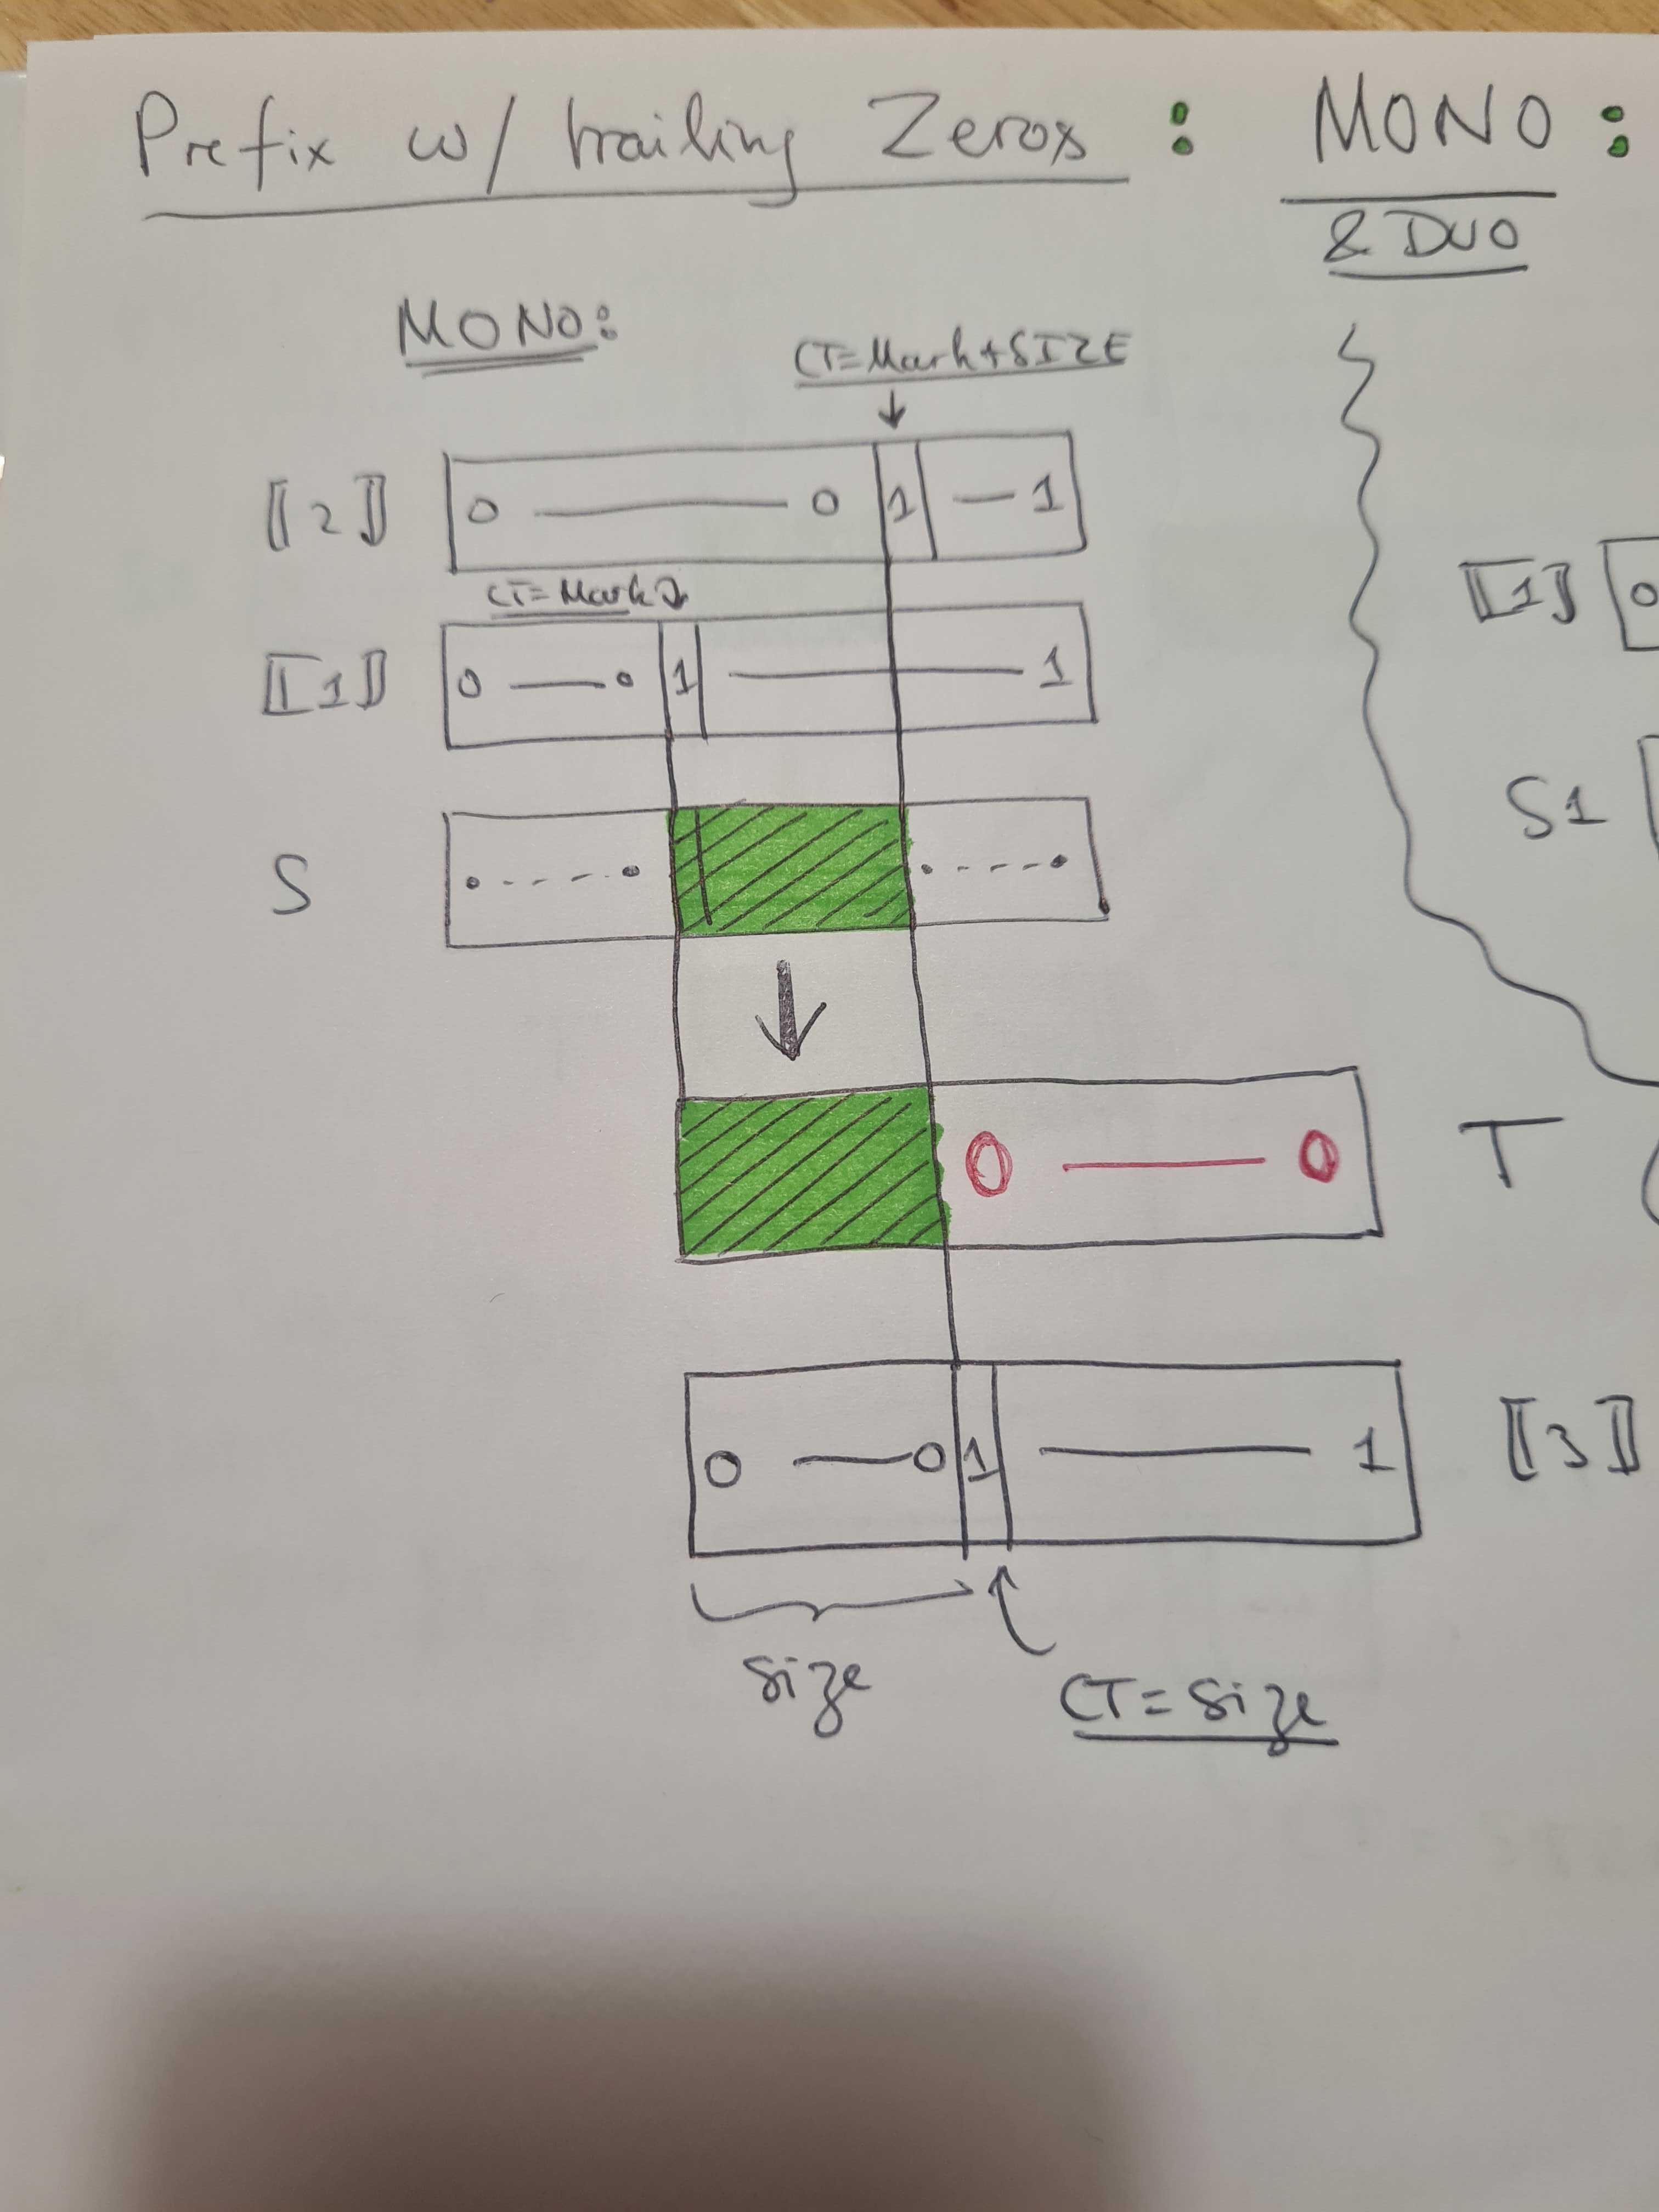 Prefix w/ trailing Zeros : MONO :
& DUO
MONO:
CT=Mark+SIZE
[[2]] 0 — 0 1 — 1
CT=Mark
[[1]] 0 — 0 1 — 1
[[1]] 0
S
S1
0 — 0 T
0 — 0 1 — 1 [[3]]
Size
CT=Size